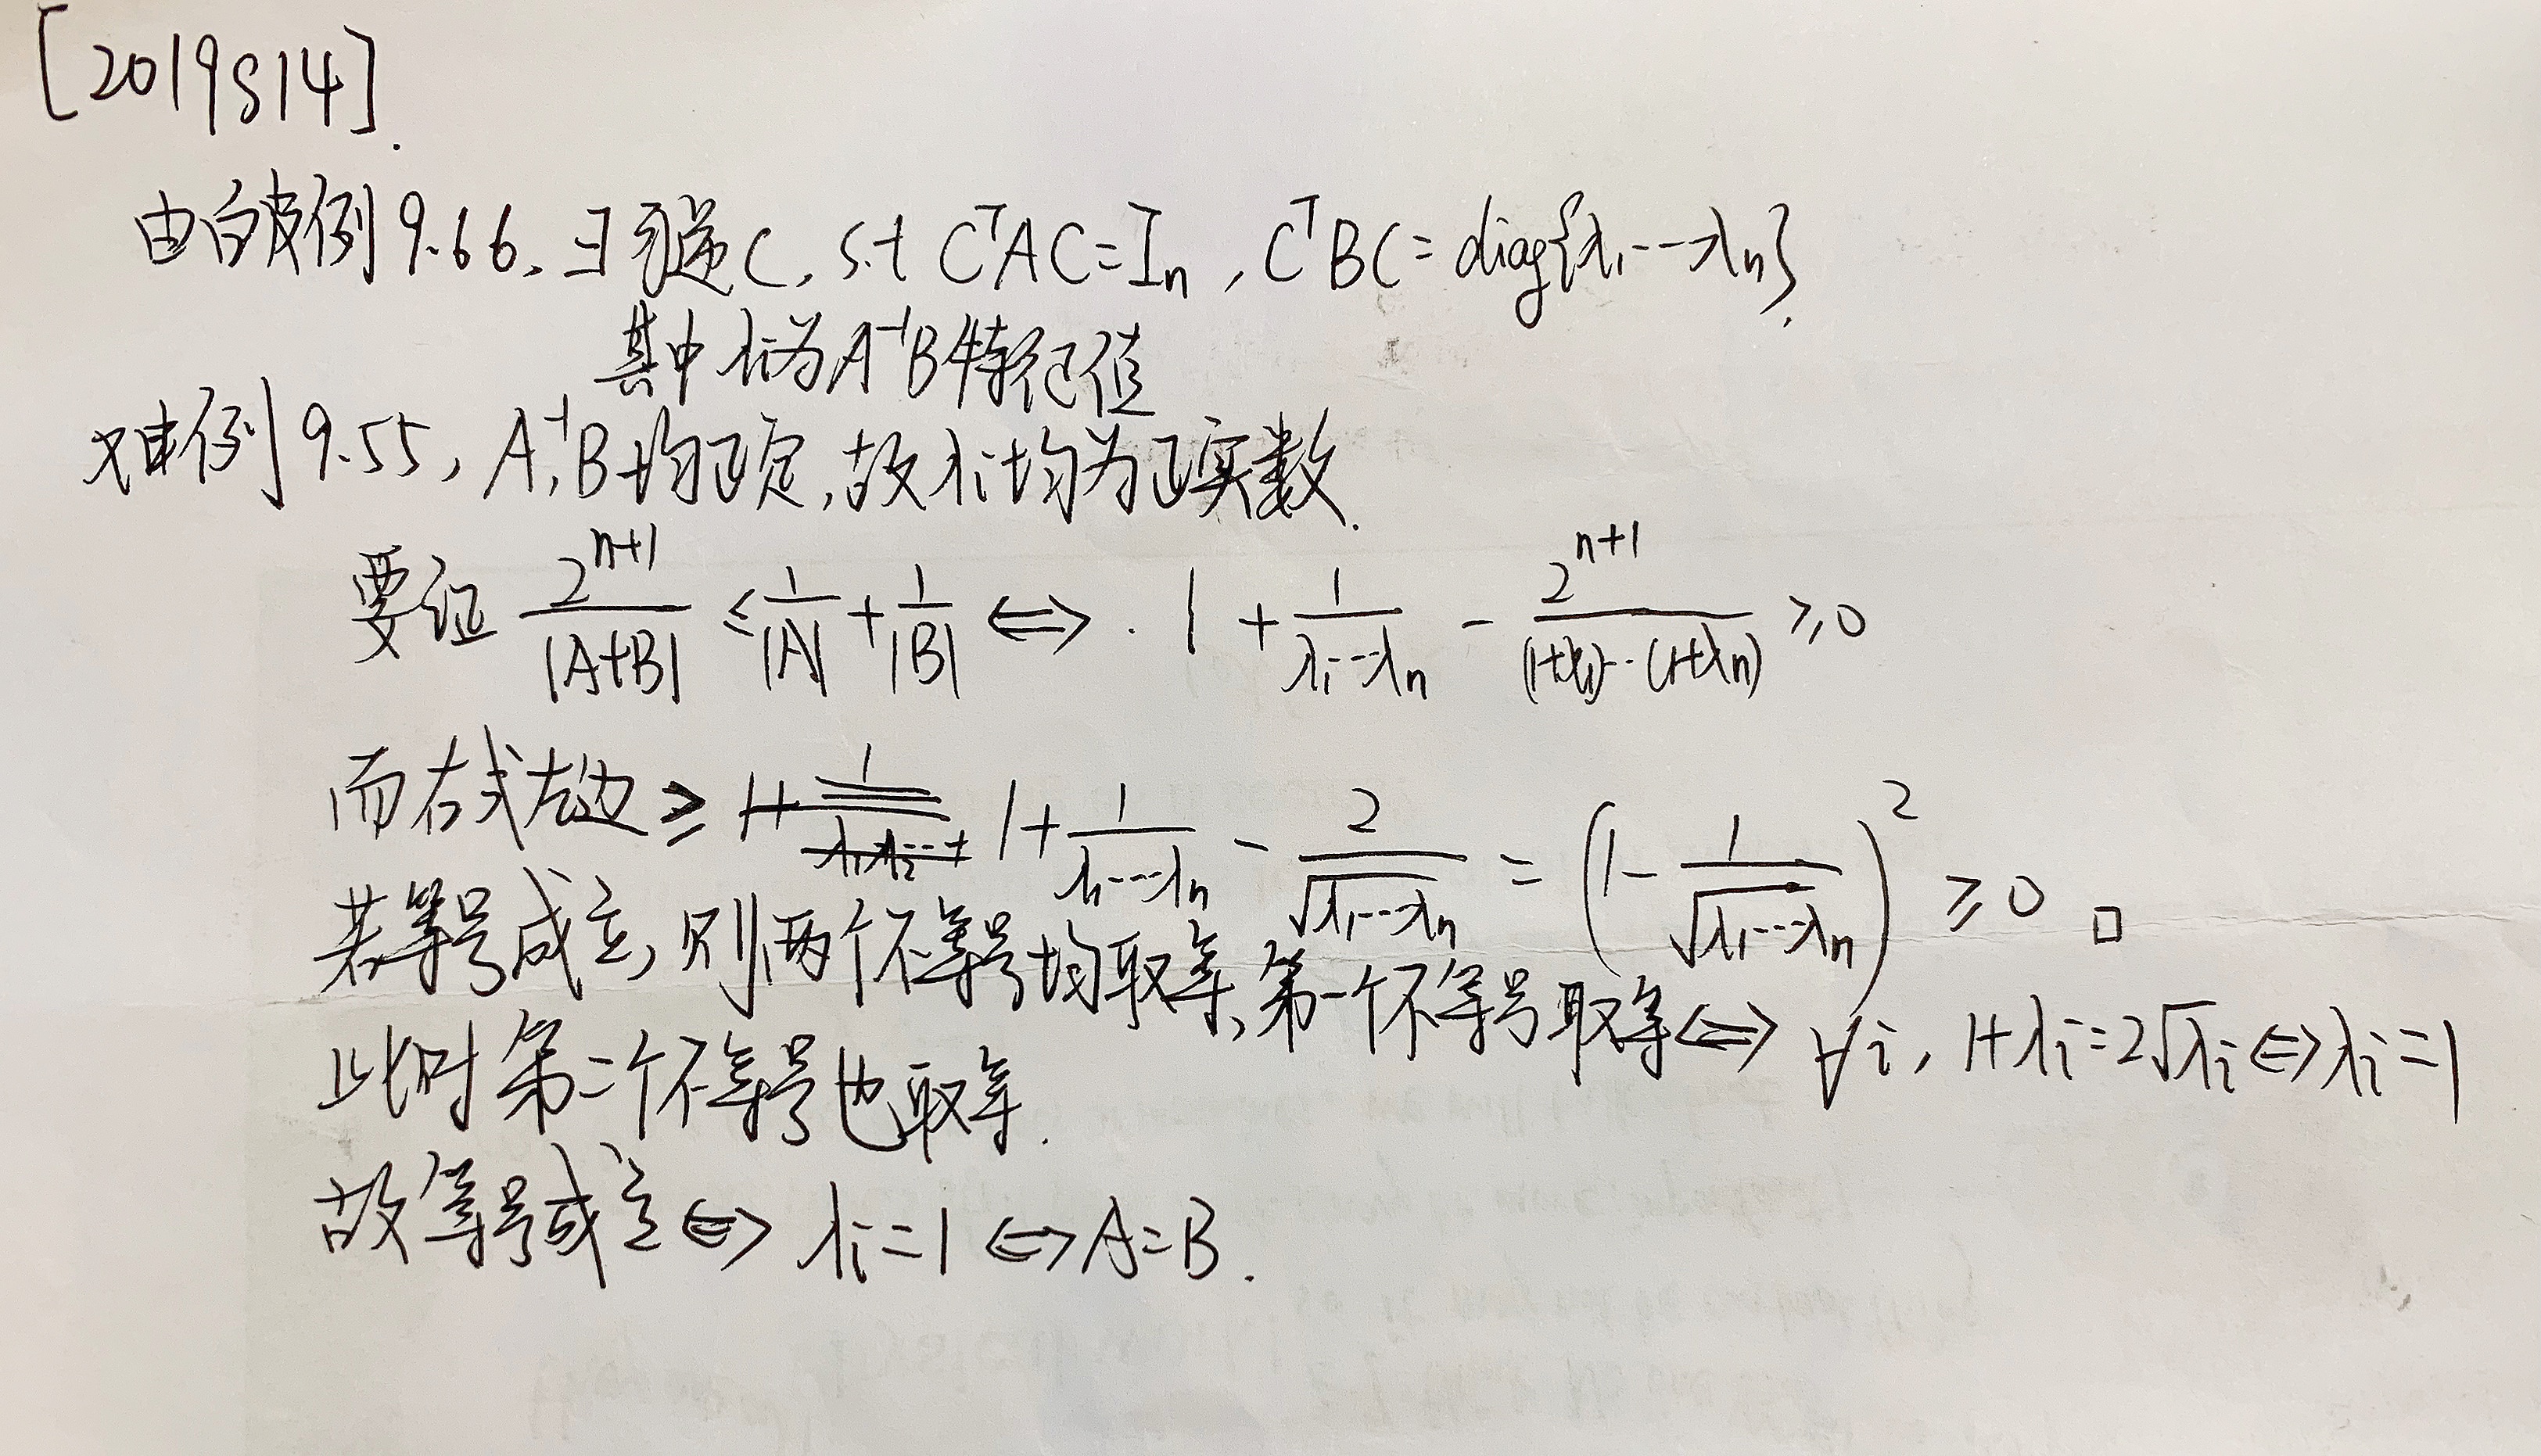 [2019S14].
由白皮例9.66, ∃可逆C, s.t C^T AC=I_n , C^T BC= diag{λ_1 ---λ_n}.
其中λ_i为A^{-1}B特征值
又由例9.55, A^{-1},B均正定,故λ_i均为正实数.
要证 \frac{2^{n+1}}{|A+B|} ≤ \frac{1}{|A|} + \frac{1}{|B|} ⇔ . 1 + \frac{1}{λ_1---λ_n} - \frac{2^{n+1}}{(1+λ_1)--(1+λ_n)} ≥0
而右式左边 ≥ 1+\frac{1}{λ_1---λ_n} - \frac{2}{\sqrt{λ_1---λ_n}} = (1- \frac{1}{\sqrt{λ_1---λ_n}})^2 ≥0 □
若等号成立, 则两个不等号均取等, 第一个不等号取等⇔ ∀i, 1+λ_i=2\sqrt{λ_i}⇔λ_i=1
此时第二个不等号也取等.
故等号成立⇔ λ_i=1 ⇔A=B.